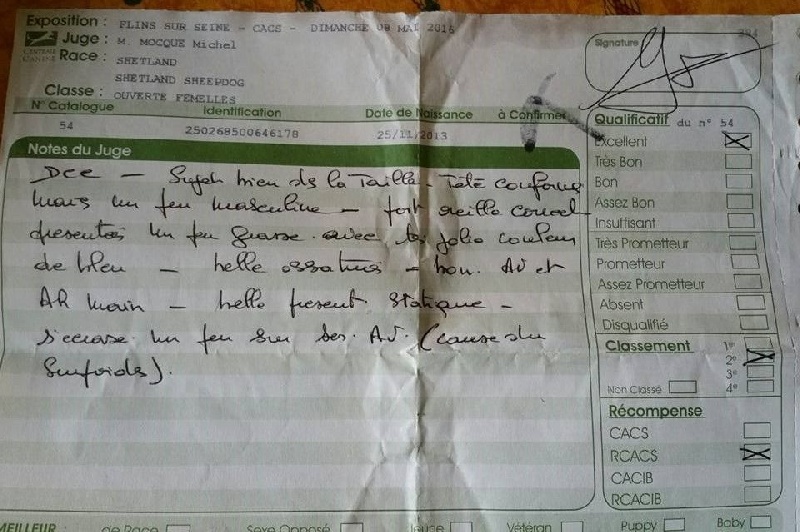 Exposition : FLINS SUR SEINE - CACS - DIMANCHE 08 MAI 2016
Juge : M. MOCQUE Michel
Race : SHETLAND
SHETLAND SHEEPDOG
Classe : OUVERTE FEMELLES
N° Catalogue Identification Date de Naissance à Confirmer
54 250268500646178 25/11/2013
Notes du Juge
DCC - Sujet bien ds la Taille - Tête conforme
mais un peu masculine - port oreille correct
présentée un peu grasse avec très jolie couleur
de bleu - belle ossature - bon. AV et
AR main - belle present statique -
s'écrase un peu sur ses AV. (cause du
surpoids).
Signature
Qualificatif du n° 54
Excellent
Très Bon
Bon
Assez Bon
Insuffisant
Très Prometteur
Prometteur
Assez Prometteur
Absent
Disqualifié
Classement 1°
2°
3°
Non Classé 4°
Récompense
CACS
RCACS
CACIB
RCACIB
MEILLEUR : de Race Sexe Opposé Jeune Vétéran Puppy Baby